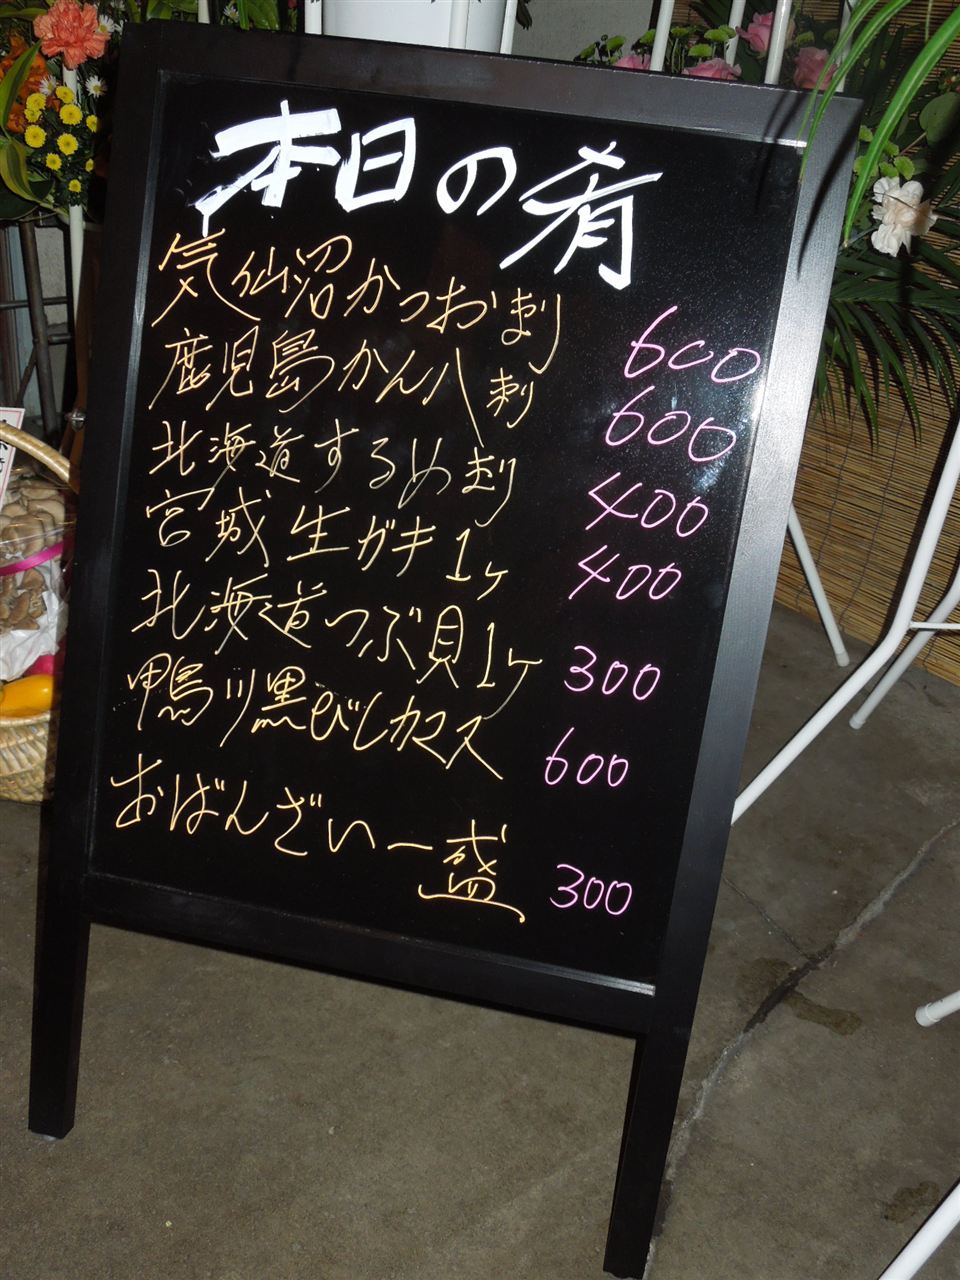 本日の肴
気仙沼かつお刺 600
鹿児島かん八刺 600
北海道するめ刺 400
宮城生ガキ1ヶ 400
北海道つぶ貝1ヶ 300
鴨川黒むしカマス 600
おばんざい一盛 300